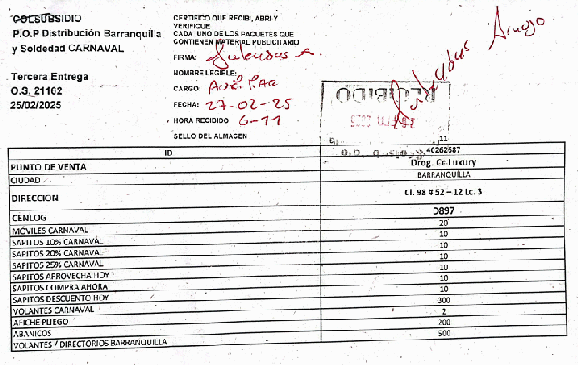 COLSUBSIDIO
P.O.P Distribución Barranquilla
y Soledad CARNAVAL
Tercera Entrega
O.S. 21102
25/02/2025
CERTIFICO QUE RECIBI, ABRI Y
VERIFIQUE
CADA UNO DE LOS PAQUETES QUE
CONTIENEN MATERIAL PUBLICITARIO
FIRMA:
NOMBRE LEGIBLE:
CARGO
FECHA: 27-02-25
HORA RECIBIDO 6-11
SELLO DEL ALMACEN
RECIBIDO
ID 40262687
PUNTO DE VENTA Drog. Co Luxury
CIUDAD BARRANQUILLA
DIRECCION Cl. 98 # 52 – 12 Lc. 3
CENLOG D897
MÓVILES CARNAVAL 20
SAPITOS 10% CARNAVAL 10
SAPITOS 20% CARNAVAL 10
SAPITOS 25% CARNAVAL 10
SAPITOS APROVECHA HOY 10
SAPITOS COMPRA AHORA 10
SAPITOS DESCUENTO HOY 10
VOLANTES CARNAVAL 300
AFICHE PLIEGO 2
ABANICOS 200
VOLANTES / DIRECTORIOS BARRANQUILLA 500